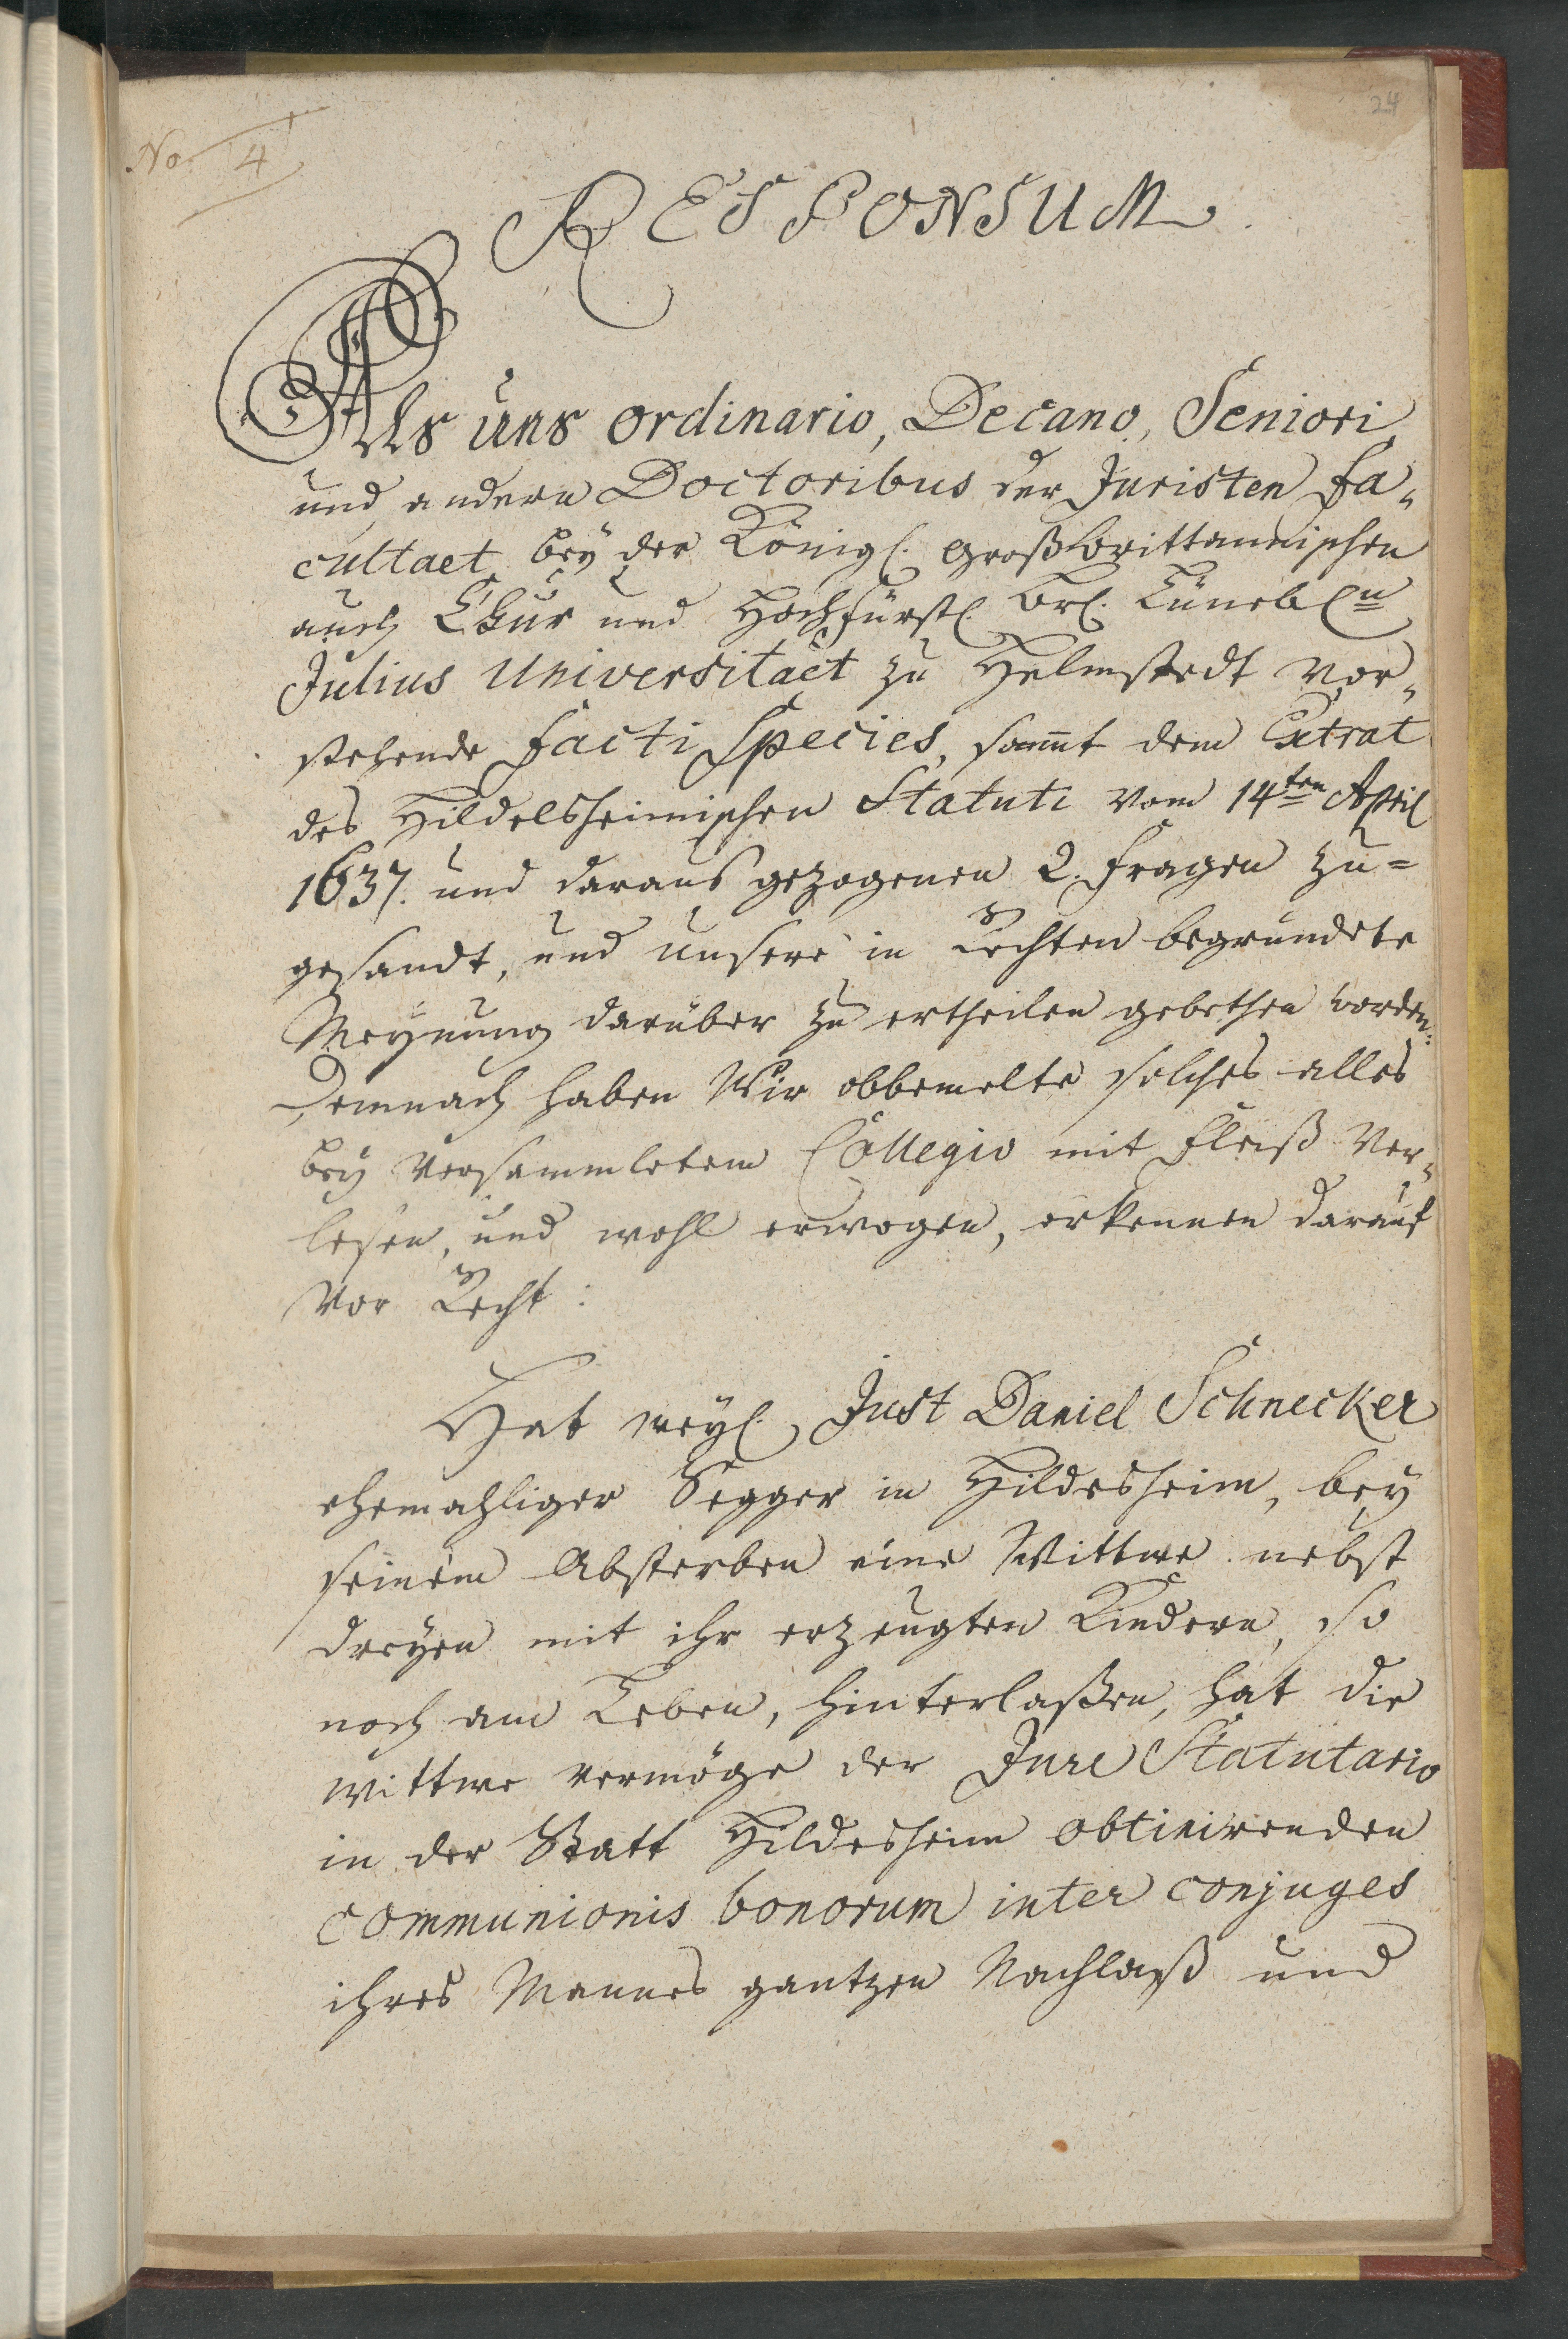 No 4
24
RESPONSUM.
Als uns ordinario, Decano, Seniori
und andern Doctoribus der Juristen Fa„
cultaet bey der Königl. Großbrittannischen
auch Chur und Hochfürstl. Brl. Lünebl.n
Julius Universitaet zu Helmstedt vor„
stehende facti Species, sammt dem Extrat
des Hildelsheimischen Statuti vom 14ten April
1637. und daraus gezogenen 2. Fragen zu=
gesandt, und unsere in Rechten begründete
Meynung darüber zu ertheilen gebethen worden:
Demnach haben Wir obbemelte solches alles
bey versammletem Collegio mit Fleiß ver„
lesen, und wohl erwogen, erkennen darauf
vor Recht:
Hat weyl. Just Daniel Schnecker
ehemahliger Segger in Hildesheim, bey
seinem Absterben eine Wittwe nebst
dreyen mit ihr erzeugten Kindern, so
noch am Leben, hinterlaßen, hat die
Wittwe vermöge der Jure Statutario
in der Statt Hildesheim obtinirenden
communionis bonorum inter conjuges
ihres Mannes gantzen Nachlaß und